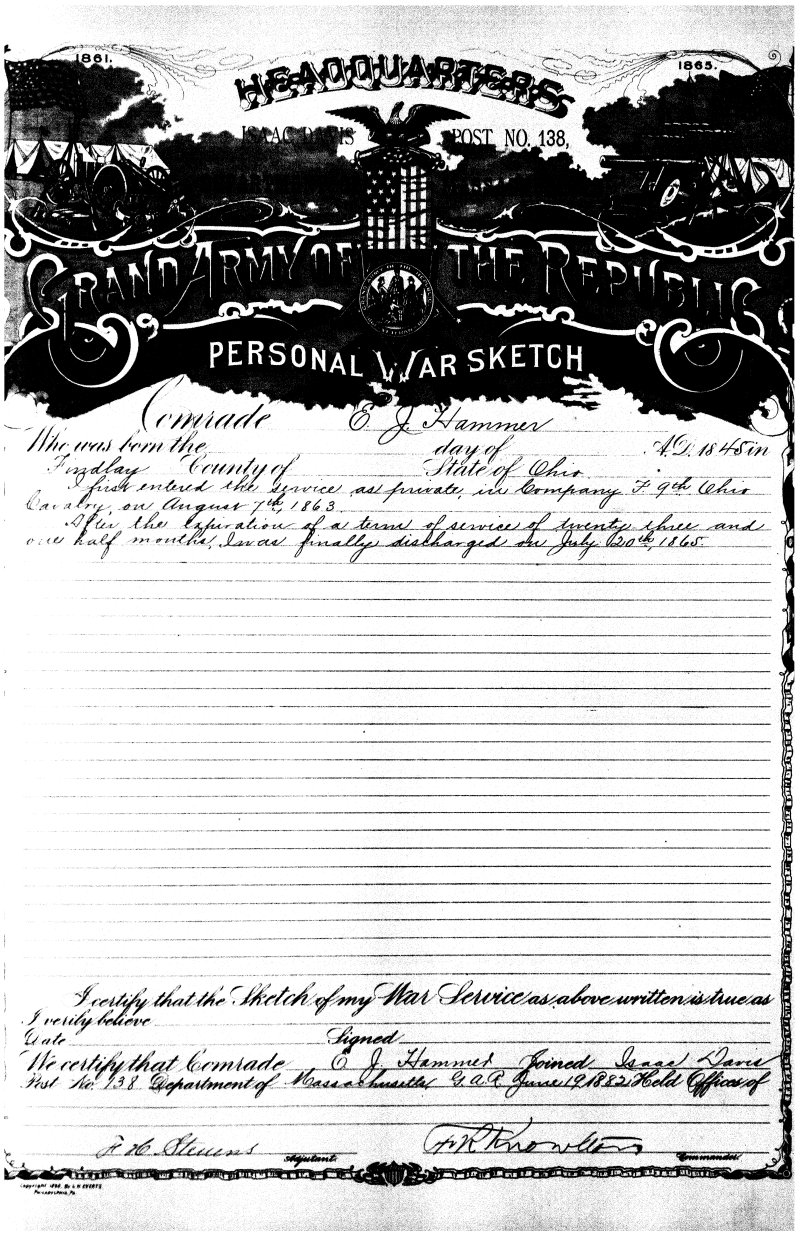 1861.
1865.
HEADQUARTERS
ISAAC DAVIS POST NO. 138,
GRAND ARMY OF THE REPUBLIC
PERSONAL WAR SKETCH
Comrade E J. Hammer
Who was born the day of A.D. 1845 in
Findlay County of State of Ohio
I first entered the service as private, in Company F. 9th Ohio
Cavalry, on August 7th, 1863
After the expiration of a term of service of twenty three and
one half months, I was finally discharged on July 20th, 1865.
I certify that the Sketch of my War Service as above written is true as
I verily believe
Date Signed
We certify that Comrade E J. Hammer Joined Isaac Davis
Post No. 138 Department of Massachusetts G.A.R. June 19, 1882 Held Offices of
F. H. Stevens Adjutant. F. R. Knowlton Commander.
Copyright 1886, By L. H. EVERTS
PHILADELPHIA, PA.